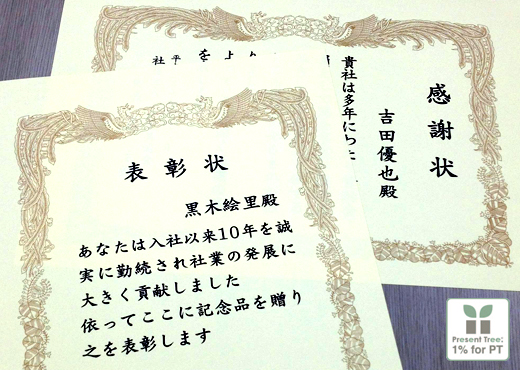 表彰状
黒木絵里殿
あなたは入社以来10年を誠
実に勤続され社業の発展に
大きく貢献しました
依ってここに記念品を贈り
之を表彰します
感謝状
吉田優也殿
貴社は多年にわた
Present Tree:
1% for PT